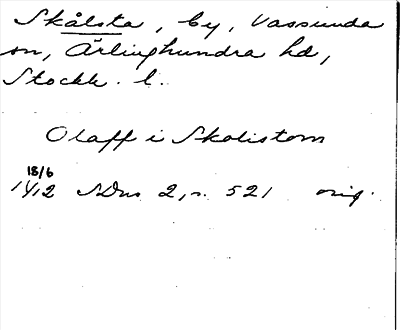 Skålsta, by, Vassunda
sn, Ärlinghundra hd,
Stockh. l.
Olaff i Skalistom
18/6
1412 SDns 2, s. 521 orig.